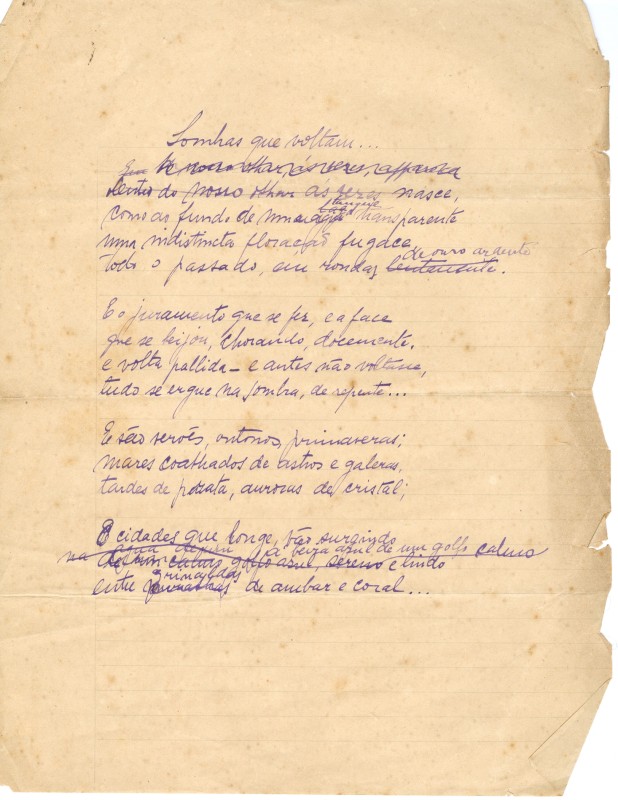 Sombras que voltam...
Em de nosso olhar, ás vezes, apparece
dentro do nosso olhar as vezes nasce,
tanque
como ao fundo de uma agua transparente
uma indistincta floração fugace
de ouro ardente
todo o passado, em rondas lentamente.
E o juramento que se fez, e a face
que se beijou, chorando, docemente,
e volta pallida - e antes não voltasse,
tudo se ergue na sombra, de repente...
E são serões, outonos, primaveras;
mares coalhados de astros e galeras,
tardes de prata, auroras de cristal;
E cidades que longe, vão surgindo
na á beira azul de um golfo calmo
de um calmo golfo azul, sereno e lindo
grinaldas
entre de ambar e coral...